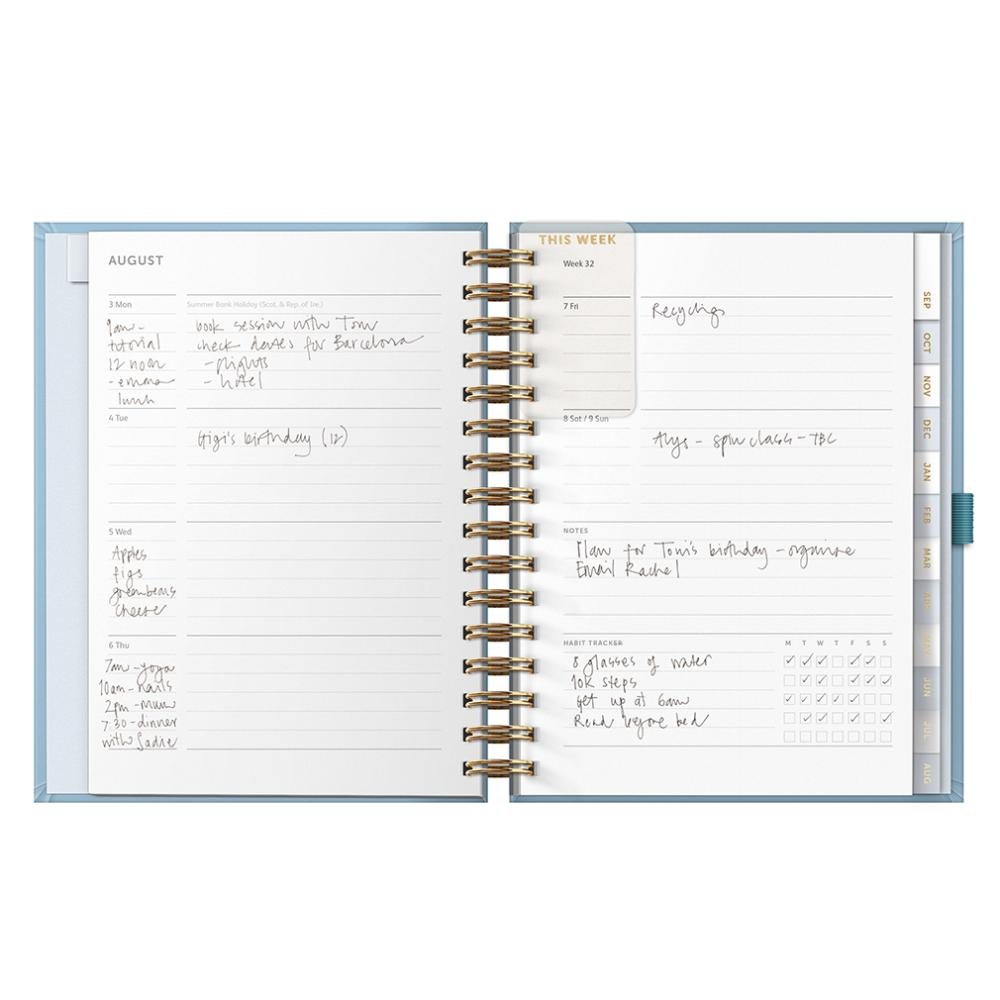 AUGUST
3 Mon
Summer Bank Holiday (Scot. & Rep. of Ire.)
9am -
tutorial
12 noon
- emma
lunch
book session with Tom
check dates for Barcelona
- flights
- hotel
4 Tue
Gigi's birthday (12)
5 Wed
Apples
figs
greenbeans
cheese
6 Thu
7am - yoga
10am - nails
2pm - mum
7:30 - dinner
with Sadie
THIS WEEK
Week 32
7 Fri
Recycling
8 Sat / 9 Sun
Alys - spin class - TBC
NOTES
Plan for Tom's birthday - organise
Email Rachel
HABIT TRACKER
M T W T F S S
8 glasses of water
10k steps
get up at 6am
Read before bed
SEP
OCT
NOV
DEC
JAN
FEB
MAR
APR
MAY
JUN
JUL
AUG